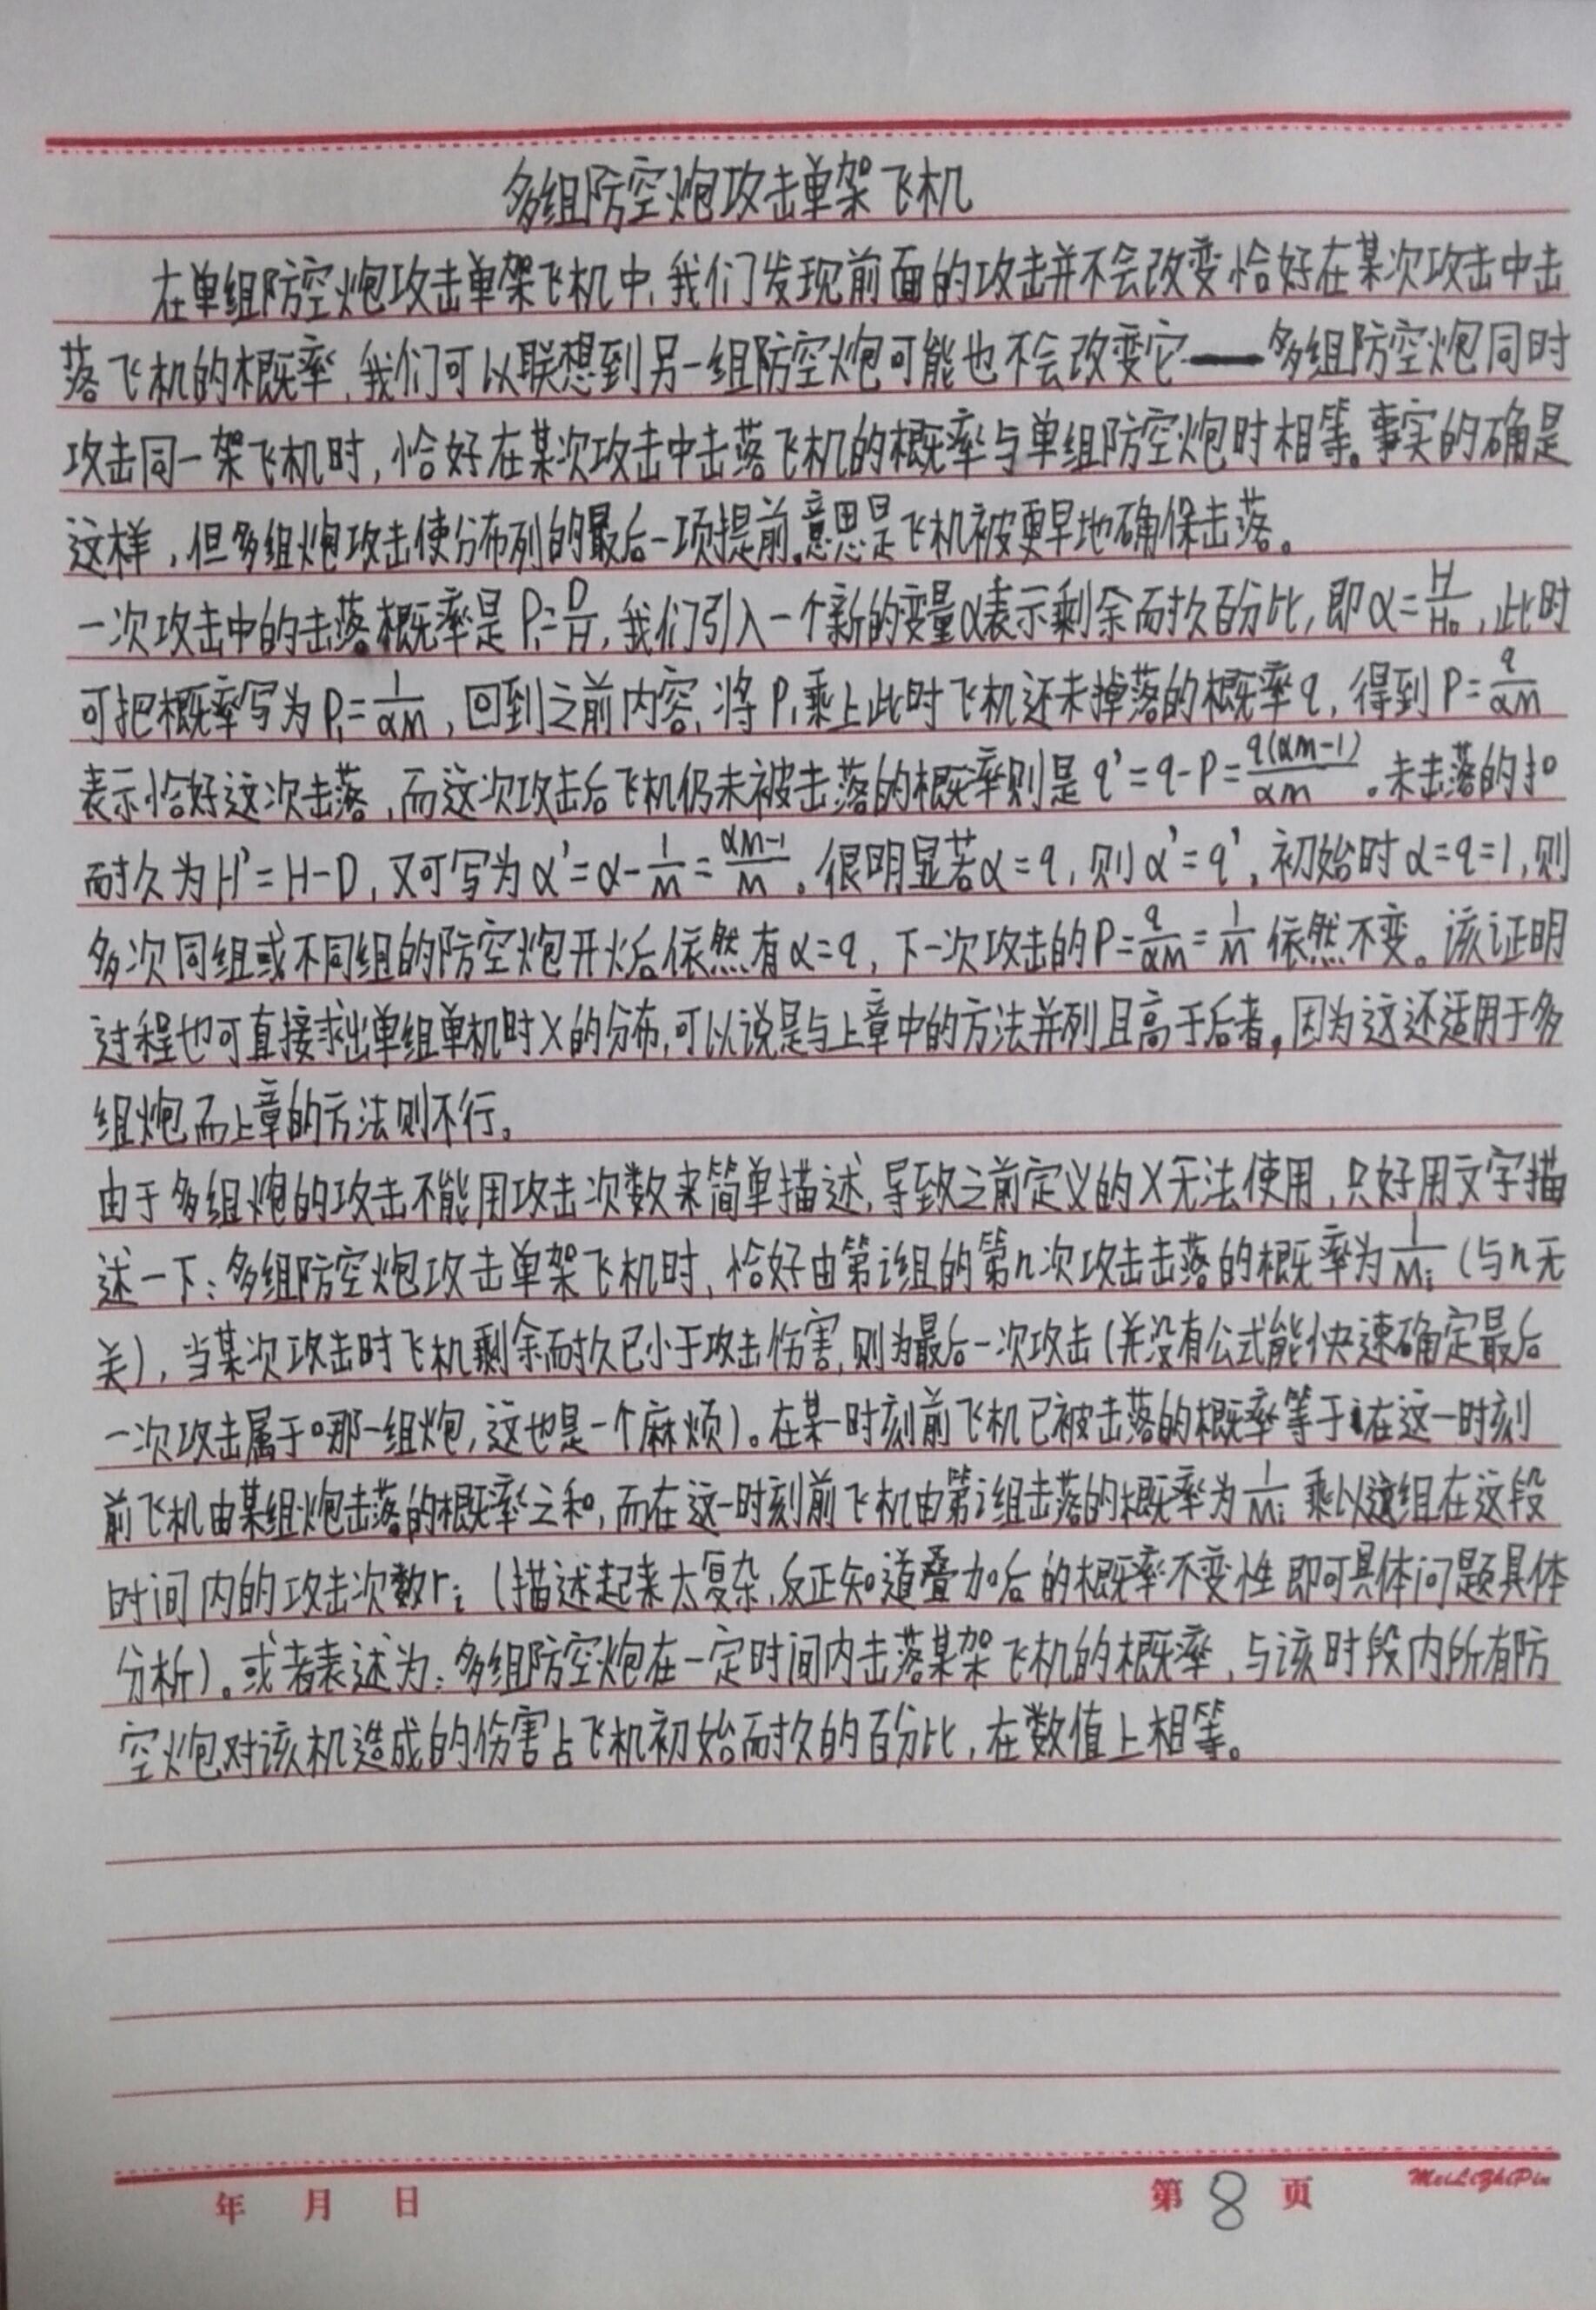 多组防空炮攻击单架飞机
在单组防空炮攻击单架飞机中,我们发现前面的攻击并不会改变恰好在某次攻击中击
落飞机的概率,我们可以联想到另一组防空炮可能也不会改变它——多组防空炮同时
攻击同一架飞机时,恰好在某次攻击中击落飞机的概率与单组防空炮时相等。事实的确是
这样,但多组炮攻击使分布列的最后一项提前,意思是飞机被更早地确保击落。
一次攻击中的击落概率是P₁=D/H,我们引入一个新的变量α表示剩余耐久百分比,即α=H/H₀,此时
可把概率写为P₁=1/αm,回到之前内容,将P₁乘上此时飞机还未掉落的概率q,得到P=q/αm
表示恰好这次击落,而这次攻击后飞机仍未被击落的概率则是q'=q-P=q(αm-1)/αm。未击落的
耐久为H'=H-D,又可写为α'=α-1/m=αm-1/m。很明显若α=q,则α'=q',初始时α=q=1,则
多次同组或不同组的防空炮开火后依然有α=q,下一次攻击的P=q/αm=1/m依然不变。该证明
过程也可直接求出单组单机时X的分布,可以说是与上章中的方法并列且高于后者,因为这还适用于多
组炮而上章的方法则不行。
由于多组炮的攻击不能用攻击次数来简单描述,导致之前定义的X无法使用,只好用文字描
述一下:多组防空炮攻击单架飞机时,恰好由第i组的第n次攻击击落的概率为1/Mᵢ(与n无
关),当某次攻击时飞机剩余耐久已小于攻击伤害,则为最后一次攻击(并没有公式能快速确定最后
一次攻击属于哪一组炮,这也是一个麻烦)。在某一时刻前飞机已被击落的概率等于在这一时刻
前飞机由某组炮击落的概率之和,而在这一时刻前飞机由第i组击落的概率为1/Mᵢ乘以这组在这段
时间内的攻击次数rᵢ(描述起来太复杂,反正知道叠加后的概率不变性即可具体问题具体
分析)。或者表述为:多组防空炮在一定时间内击落某架飞机的概率,与该时段内所有防
空炮对该机造成的伤害占飞机初始耐久的百分比,在数值上相等。
年 月 日 第 8 页 MeiLiZhiPin